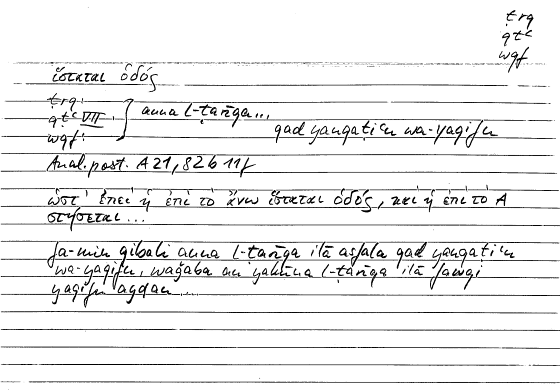 ṭrq
qṭʿ
wqf
ἵσταται ὁδός
ṭrq:
qṭʿ VII:
wqf:
anna l-ṭarīqa...
qad yanqaṭiʿu wa-yaqifu
Anal. post. A 21, 82b 11f
ὥστ' ἐπεὶ ἡ ἐπὶ τὸ ἄνω ἵσταται ὁδός, καὶ ἡ ἐπὶ τὸ A
στήσεται...
fa-min qibali anna l-ṭarīqa ilā asfala qad yanqaṭiʿu
wa-yaqifu, waǧaba an yakūna l-ṭarīqa ilā fawqi
yaqifu